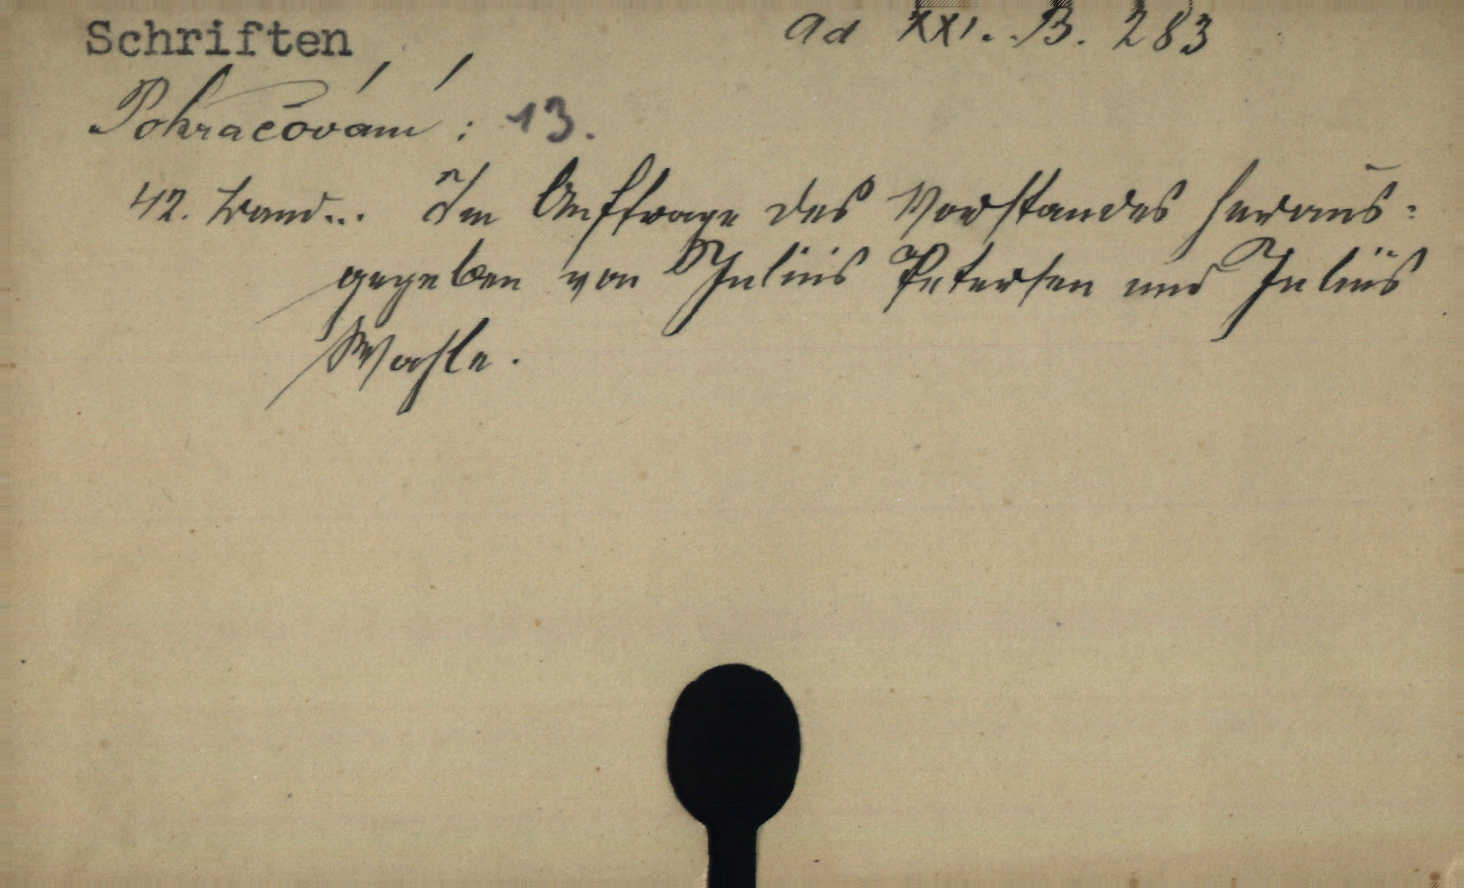 Schriften
ad XXI. B. 283
Pokračování : 13.
42. Band... Im Auftrage des Vorstandes heraus=
gegeben von Julius Petersen und Julius
Wahle.